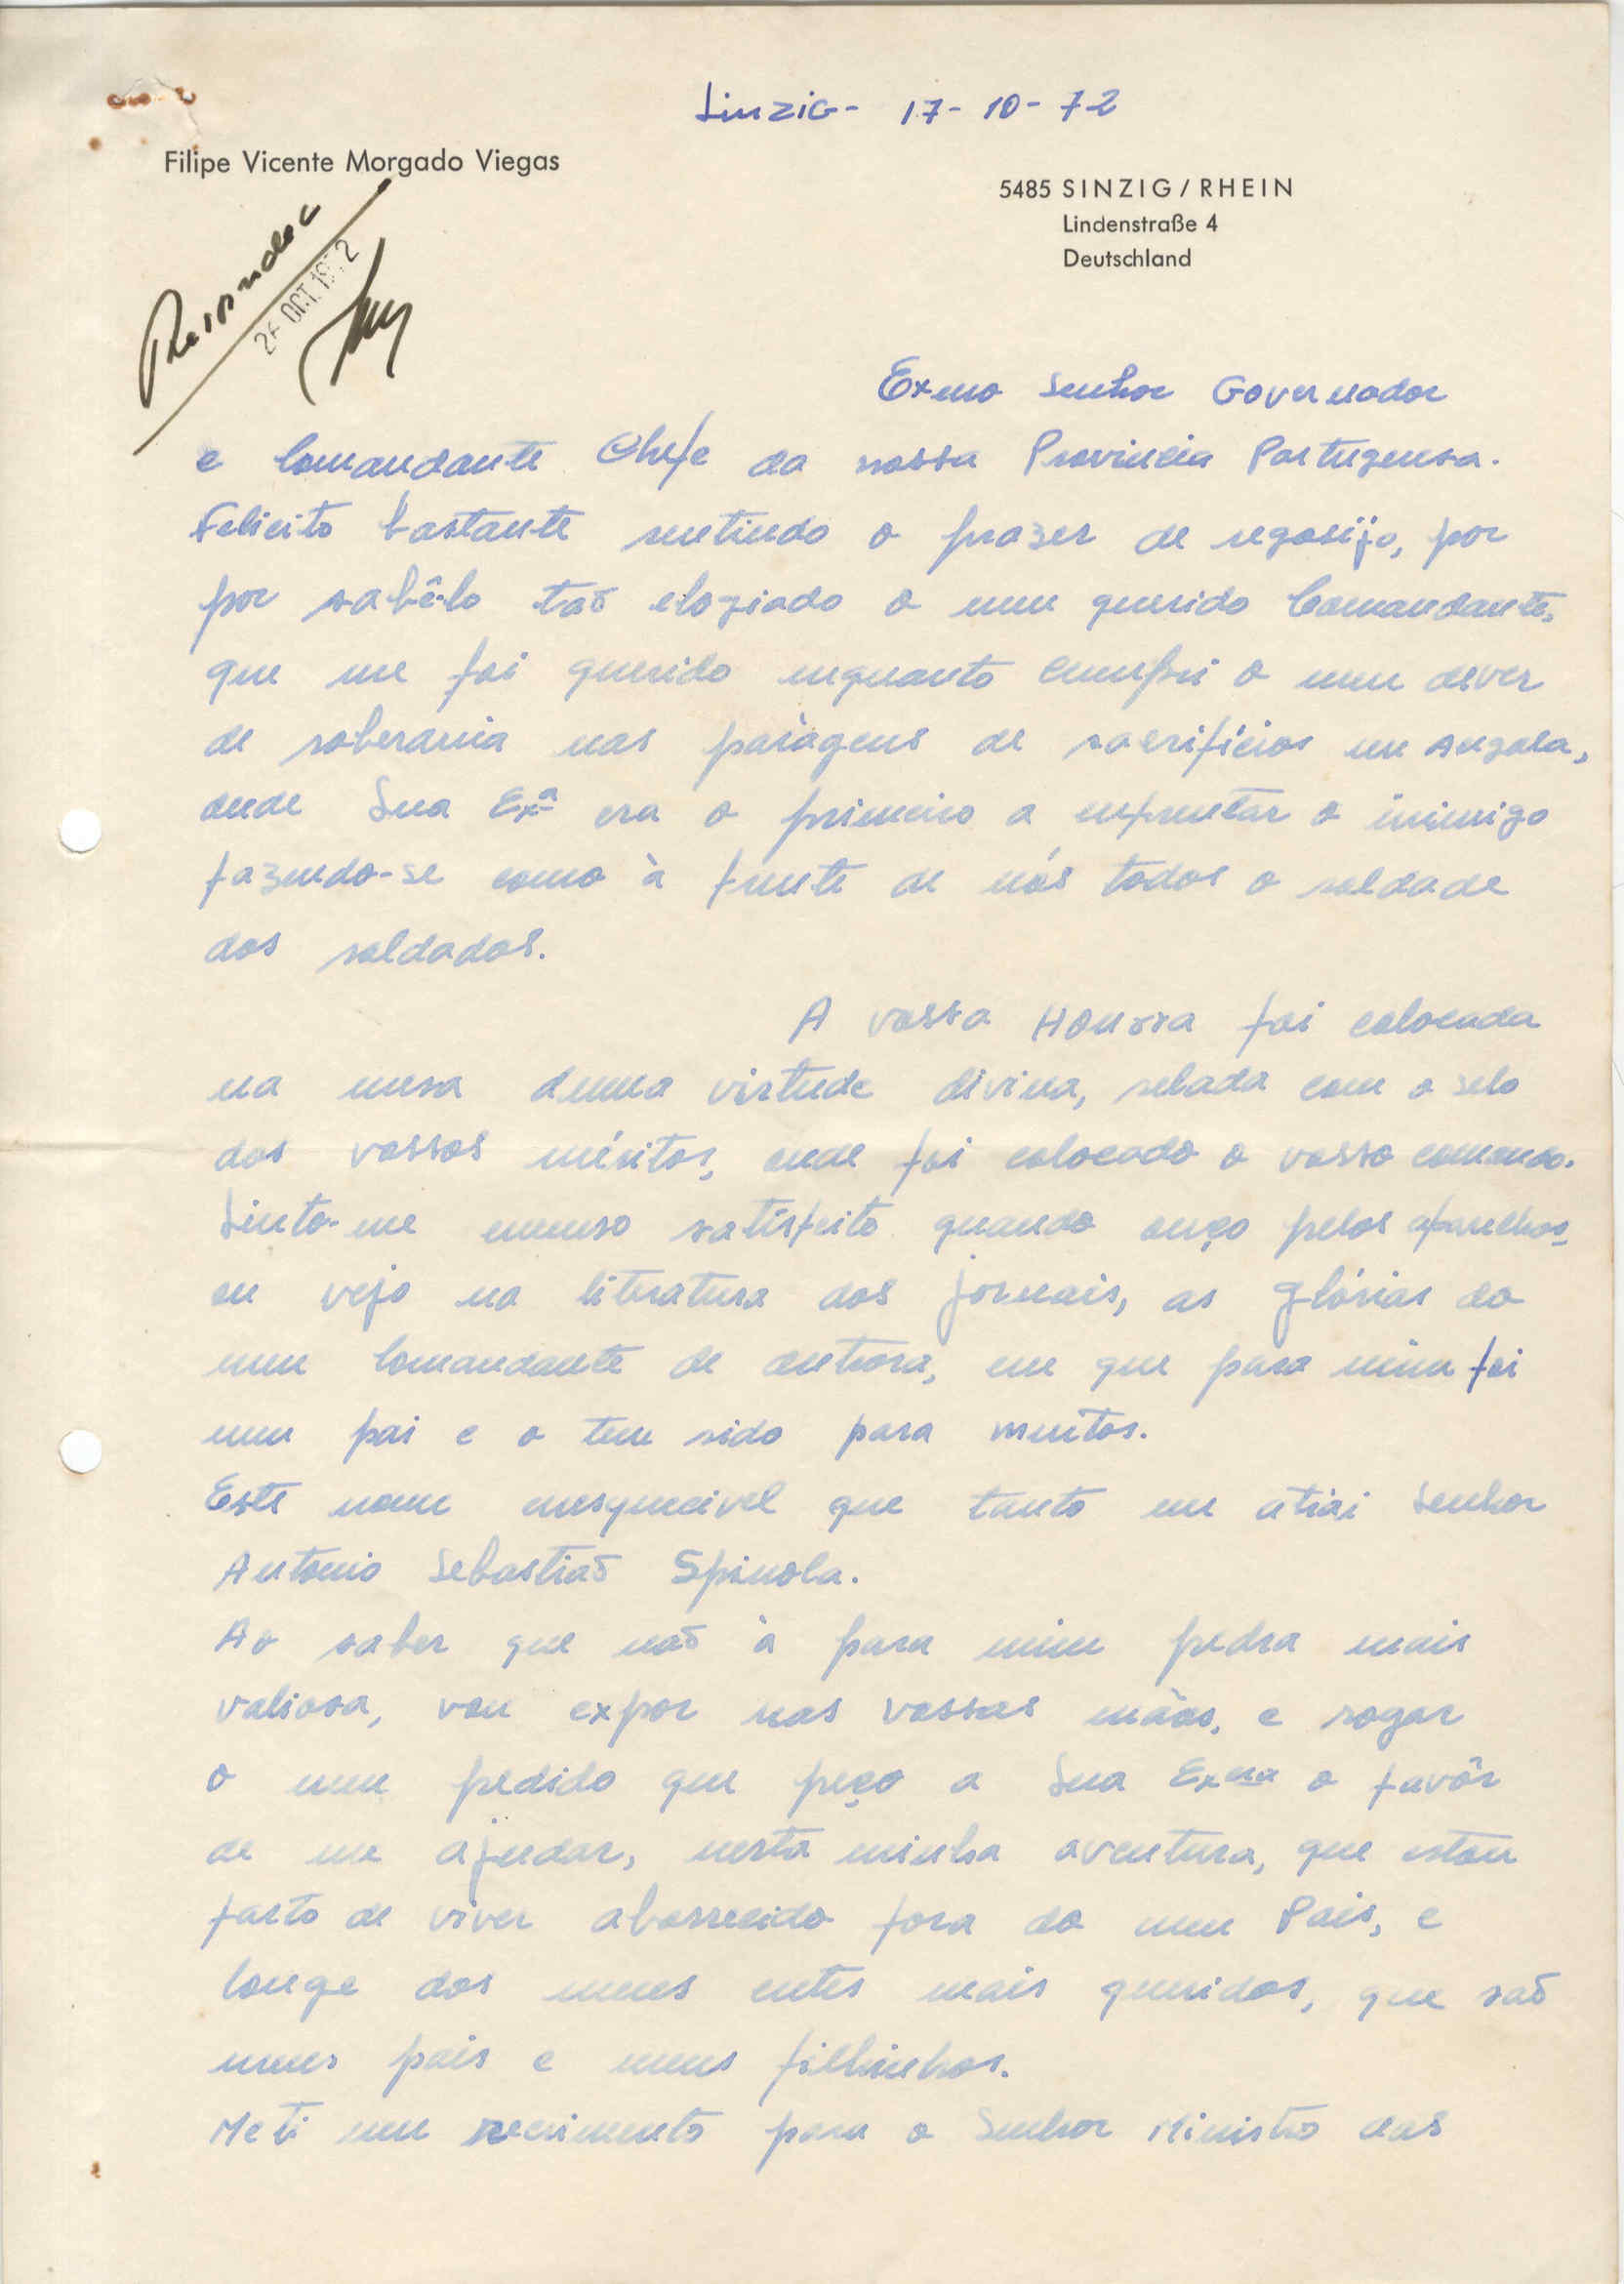 Sinzig - 17-10-72
Filipe Vicente Morgado Viegas
5485 SINZIG/RHEIN
Lindenstraße 4
Deutschland
26 OCT. 1972
Exmo Senhor Governador
e Comandante Chefe da nossa Provincia Portuguesa.
Felicito bastante sentindo o prazer de regosijo, por
por sabê-lo taõ elogiado o meu querido Comandante,
que me foi querido enquanto cumpri o meu dever
de soberania nas paràgens de sacrifícios em Angola,
onde Sua Exª era o primeiro a enfrentar o inimigo
fazendo-se como à frente de nós todos o soldade
dos soldados.
A vossa Honrra foi colocada
na mesa duma virtude divina, selada com o selo
dos vossos méritos, onde foi colocado o vosso comando.
Sinto-me imenso satisfeito quando ouço pelos aparelhos,
ou vejo na literatura dos jornais, as glórias do
meu Comandante de outrora, em que para mim foi
um pai e o tem sido para muitos.
Este nome inesquecivel que tanto me atrai Senhor
Antonio Sebastiaõ Spinola.
Ao saber que naõ à para mim pedra mais
valiosa, vou expor nas vossas mãos, e rogar
o meu pedido que peço a Sua Exma o favôr
de me ajudar, nesta minha aventura, que estou
farto de viver aborrecido fora do meu Pais, e
longe dos meus entes mais queridos, que saõ
meus pais e meus filhinhos.
Meti um para o Senhor Ministro das